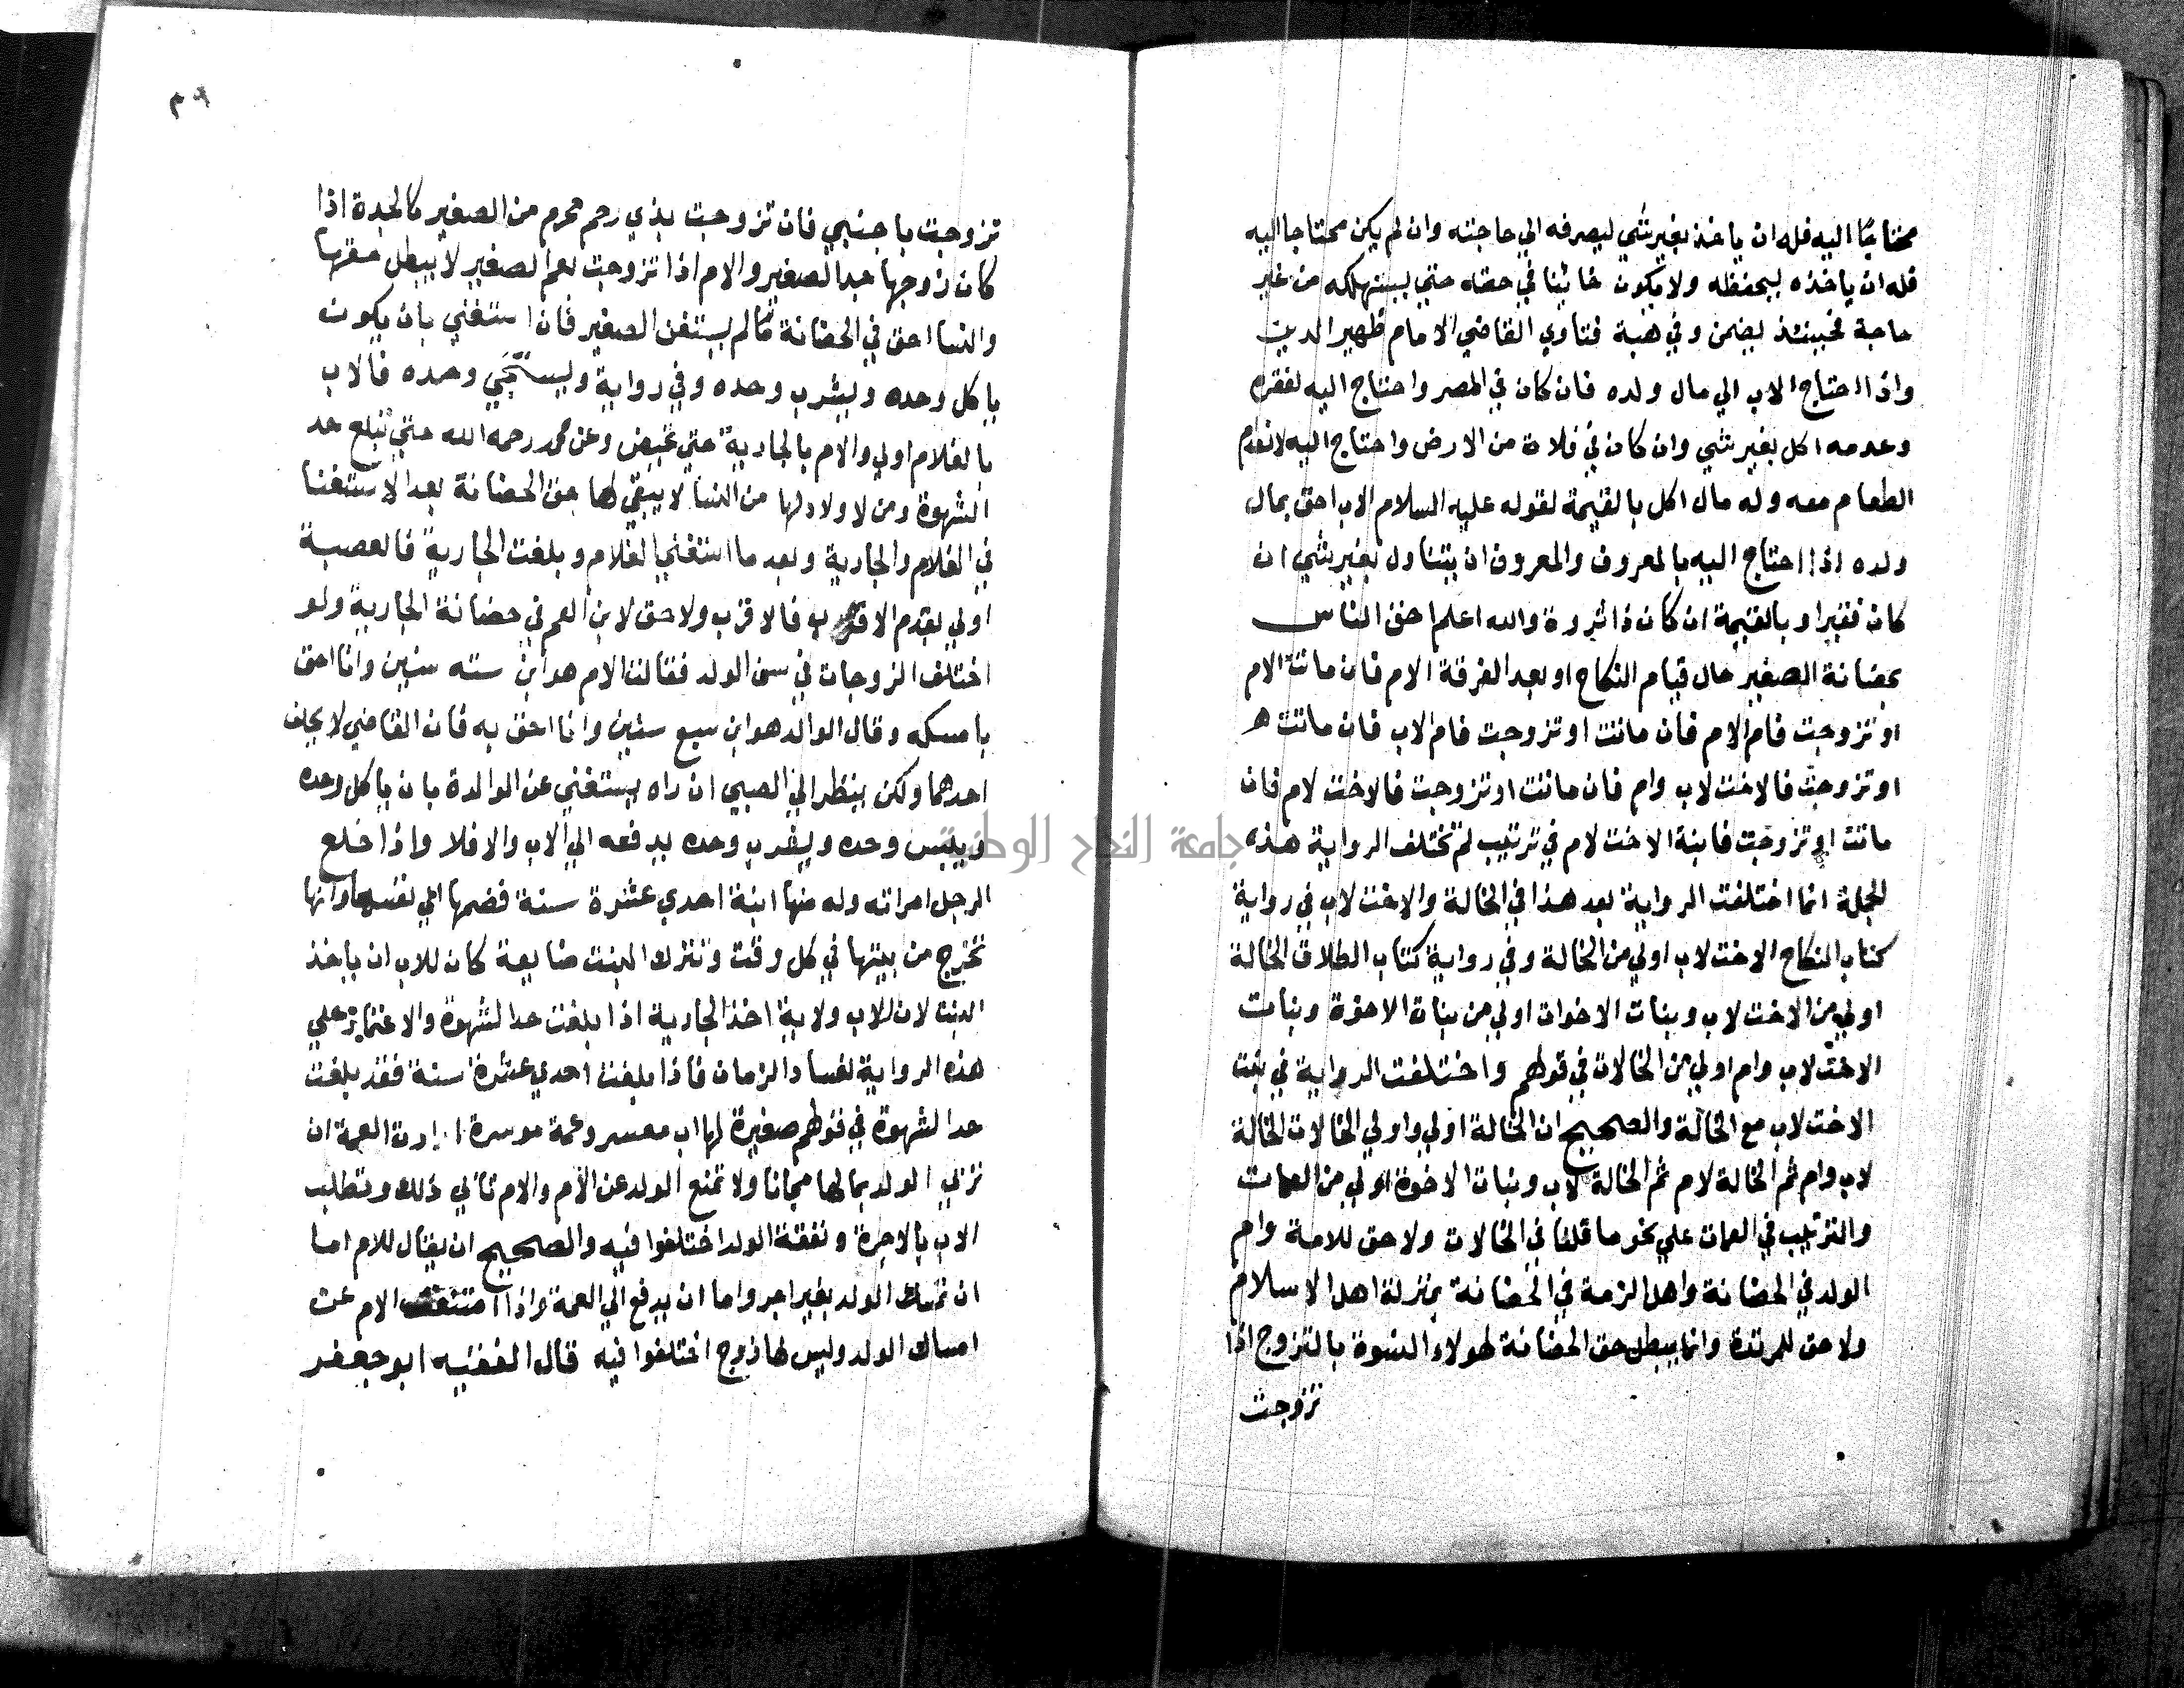 محتاجا اليه فله ان ياخذ بغير شي ليصرفه الي حاجته وان لم يكن محتاجا اليه
فله ان ياخذه ليحفظه ولا يكون خائنا في حقه حتي يستهلكه من غير
حاجة فحينئذ يضمن وفي هبة فتاوي القاضي الامام ظهير الدين
واذا احتاج الاب الي مال ولده فان كان في المصر واحتاج اليه لفقره
وعدمه اكل بغير شي وان كان في فلاة من الارض واحتاج اليه لانعدام
الطعام معه وله مال اكل بالقيمة لقوله عليه السلام الاب احق بمال
ولده اذا احتاج اليه بالمعروف والمعروف ان يتناول بغير شي ان
كان فقيرا وبالقيمة ان كان ذا ثروة والله اعلم احق الناس
بحضانة الصغير حال قيام النكاح او بعد الفرقة الام فان ماتت الام
او تزوجت فام الام فان ماتت او تزوجت فام الاب فان ماتت
او تزوجت فالاخت لاب وام فان ماتت او تزوجت فالاخت لام فان
ماتت او تزوجت فابنة الاخت لام في ترتيب لم تختلف الرواية هذه
الجملة انما اختلفت الرواية بعد هذا في الخالة والاخت لاب في رواية
كتاب النكاح الاخت لاب اولي من الخالة وفي رواية كتاب الطلاق الخالة
اولي من الاخت لاب وبنات الاخوات اولي من بنات الاخوة وبنات
الاخت لاب وام اولي من الخالات في قولهم واختلفت الرواية في بنت
الاخت لاب مع الخالة والصحيح ان الخالة اولي واولي الخالات الخالة
لاب وام ثم الخالة لام ثم الخالة لاب وبنات الاخوة اولي من العمات
والترتيب في العمات علي نحو ما قلنا في الخالات ولا حق للامة وام
الولد في الحضانة واهل الذمة في الحضانة بمنزلة اهل الاسلام
ولا حق للمرتدة وانما يبطل حق الحضانة لهولاء النسوة بالتزوج اذا
تزوجت
٣٩
تزوجت باجنبي فان تزوجت بذي رحم محرم من الصغير كالجدة اذا
كان زوجها جد الصغير والام اذا تزوجت بعم الصغير لا يبطل حقها
والنسا احق في الحضانة مالم يستغن الصغير فان استغني بان يكون
ياكل وحده ويشرب وحده وفي رواية ويستنجي وحده فالاب
بالغلام اولي والام بالجارية حتي تحيض وعن محمد رحمه الله حتي تبلغ حد
الشهوة ومن لا ولاد لها من النسا لا يبقي لها حق الحضانة بعد الاستغنا
في الغلام والجارية وبعد ما استغني الغلام وبلغت الجارية فالعصبة
اولي يقدم الاقرب فالاقرب ولا حق لابن العم في حضانة الجارية ولو
اختلف الزوجان في سن الولد فقالت الام هو ابن سته سنين وانا احق
بامسكه وقال الوالد هو ابن سبع سنين وانا احق به فان القاضي لا يحلف
احدهما ولكن ينظر الي الصبي ان راه يستغني عن الوالدة بان ياكل وحده
ويلبس وحده ويشرب وحده يدفعه الي الاب والا فلا واذا خلع
الرجل امراته وله منها ابنة احدي عشرة سنة فضمها الي نفسها وانها
تخرج من بيتها في كل وقت وتترك البنت ضايعة كان للاب ان ياخذ
البنت لان للاب ولاية اخذ الجارية اذا بلغت حد الشهوة والاعتماد علي
هذه الرواية لفساد الزمان فاذا بلغت احدي عشرة سنة فقد بلغت
حد الشهوة في قولهم صغيرة لها اب معسر وعمة موسرة ارادت العمة ان
تربي الولد بمالها مجانا ولا تمنع الولد عن الام والام تابي ذلك وتطلب
الاب بالاجرة ونفقة الولد اختلفوا فيه والصحيح ان يقال للام اما
ان تمسك الولد بغير اجر واما ان يدفع الي العمة واذا امتنعت الام عن
امساك الولد وليس لها زوج اختلفوا فيه قال الفقيه ابو جعفر
جامعة النجاح الوطنية